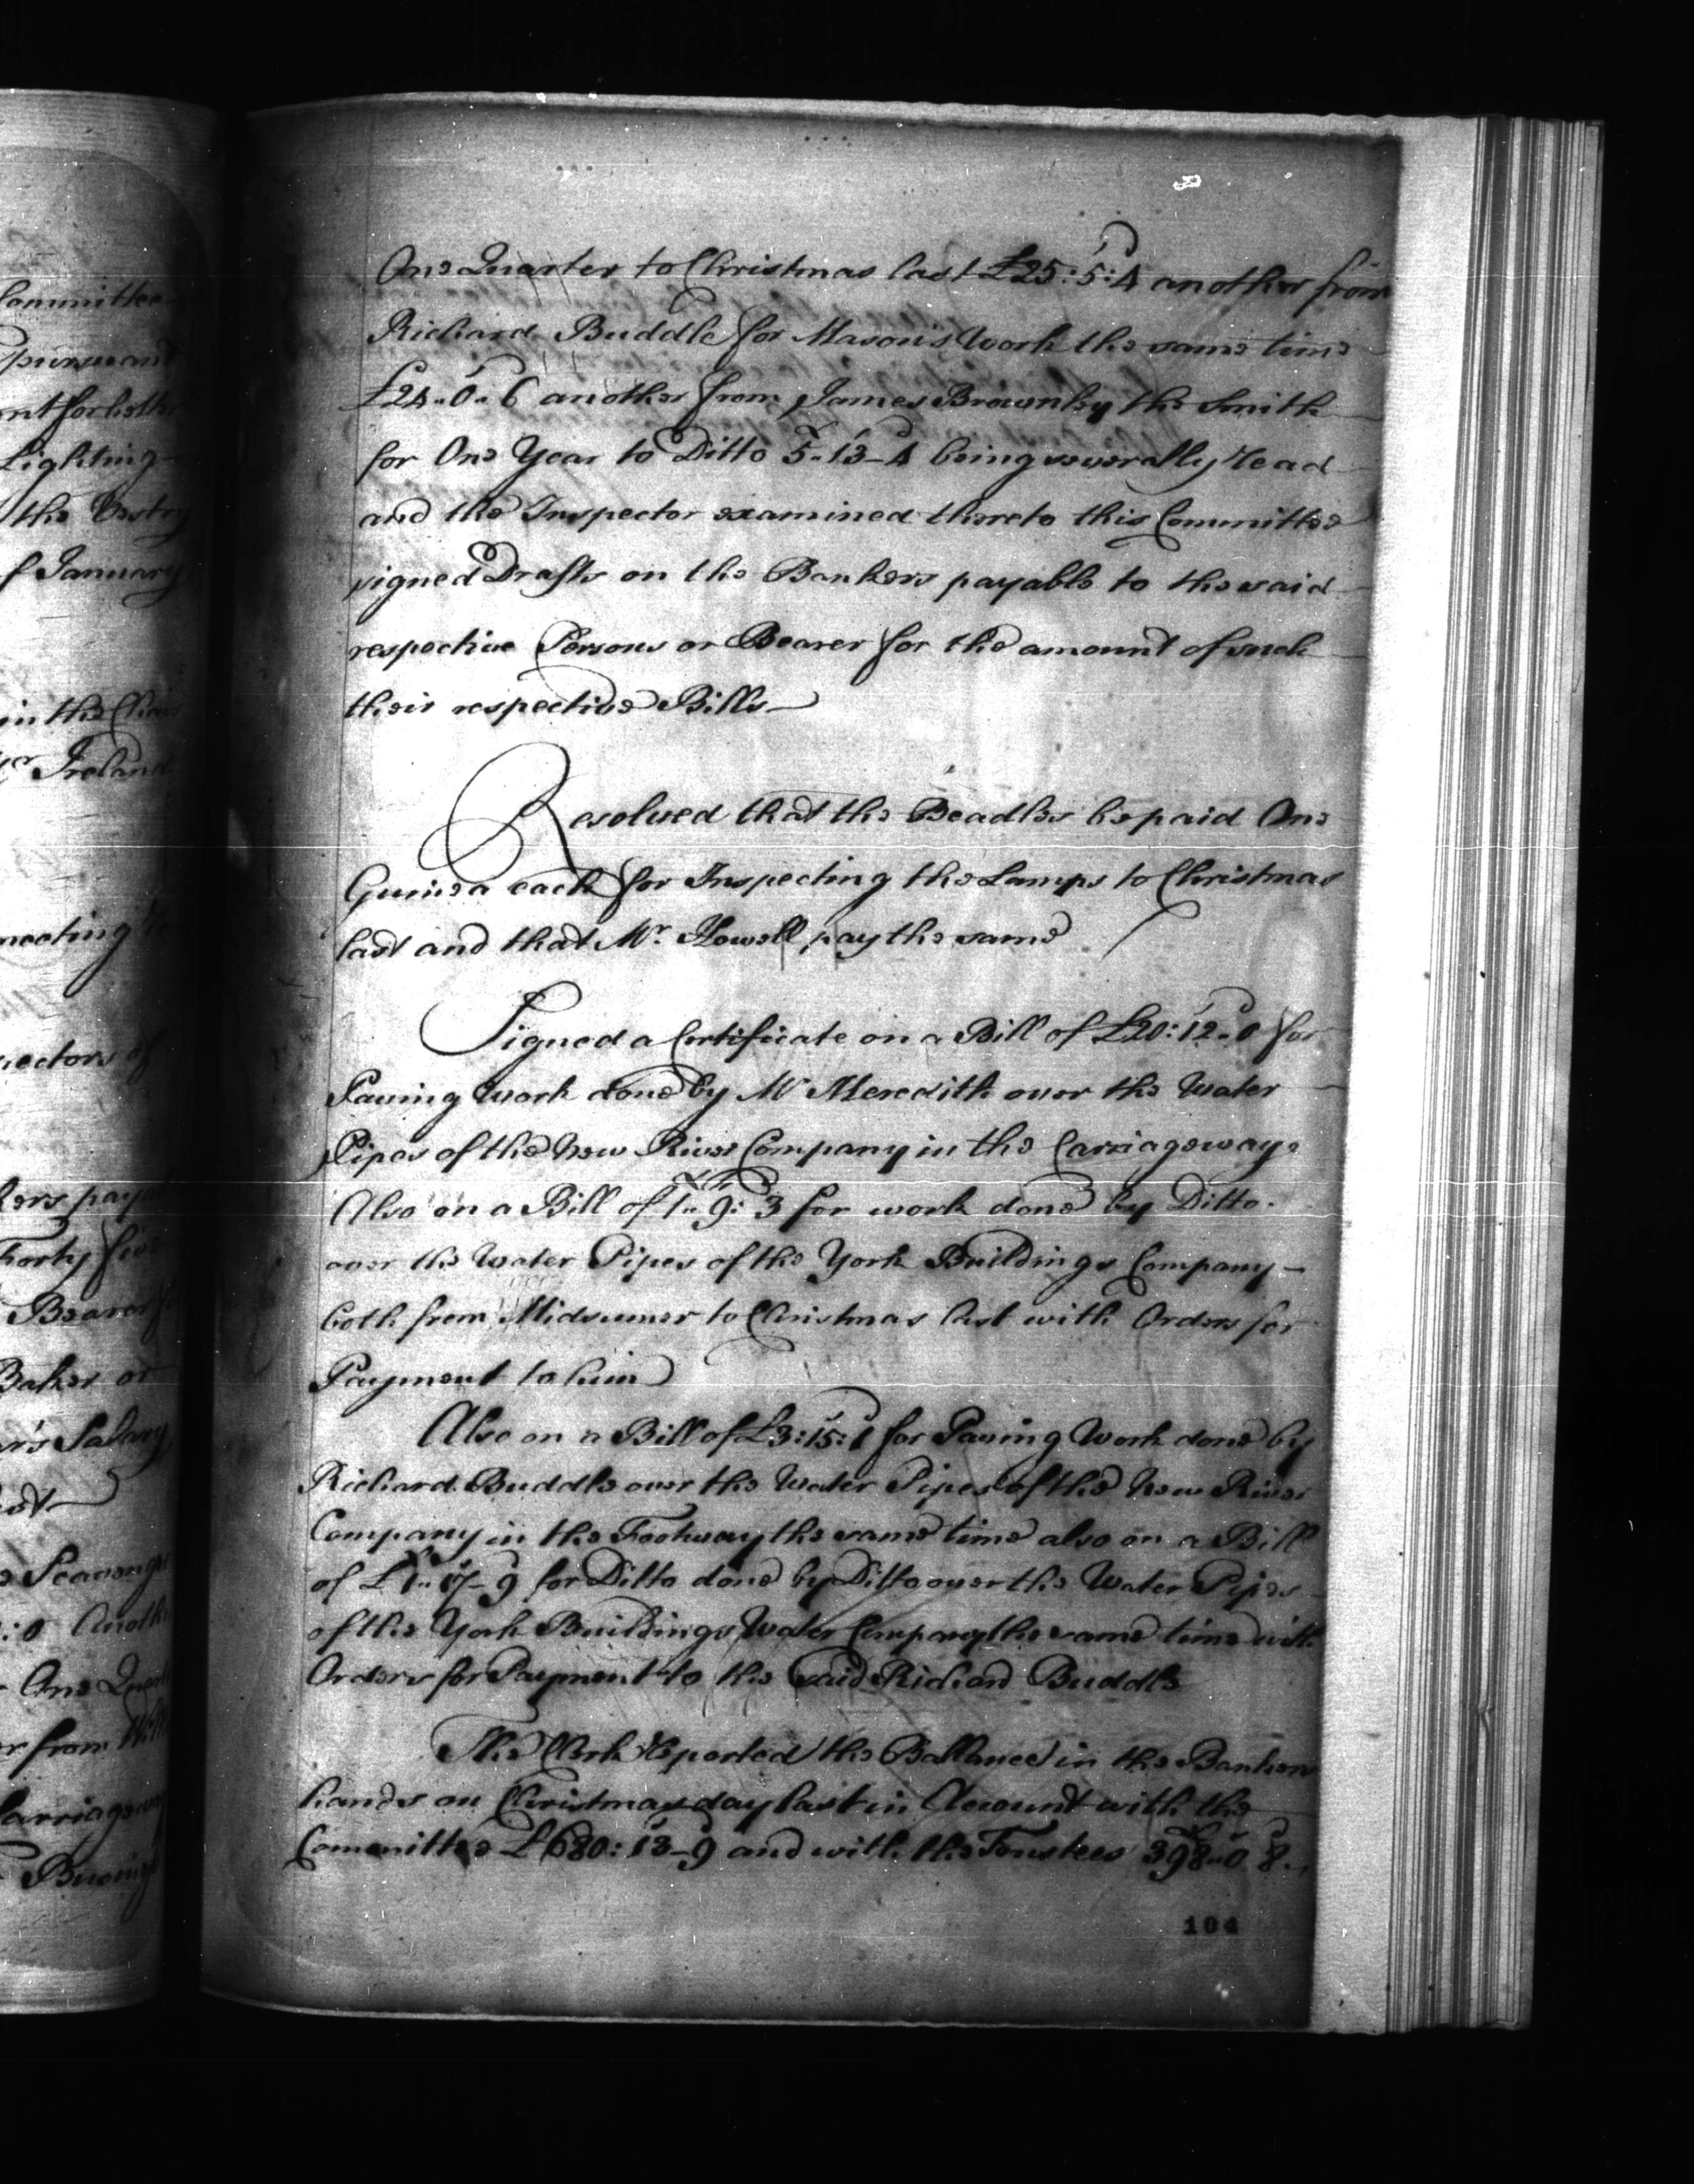 Committee
pursuant
nt for better
Lighting
the Vestry
f January
in the Chair
Ireland
meeting
pectors of
kers payab
Forty five
Bearer
Baker or
r's Salary
Scavenger
: 0 Anoth
One Quar
r from
Carriageway
One Quarter to Christmas last £25:5:4 another from
Richard Buddle for Mason's Work the same time
£24.0.6 another from James Brownley the Smith
for One Year to Ditto 5-13-4 being severally read
and the Inspector examined thereto this Committee
signed Drafts on the Bankers payable to the said
respective Persons or Bearer for the amount of such
their respective Bills
Resolved that the Beadles be paid One
Guinea each for Inspecting the Lamps to Christmas
last and that Mr. Howell pay the same
Signed a Certificate on a Bill of £20:12.0 for
Paving Work done by Mr Meredith over the Water
Pipes of the New River Company in the Carriageway
Also on a Bill of 1.9:3 for work done by Ditto
over the Water Pipes of the York Buildings Company
both from Midsumer to Christmas last with Orders for
Payment to him
Also on a Bill of £3:15:1 for Paving Work done by
Richard Buddle over the Water Pipes of the New River
Company in the Footway the same time also on a Bill
of £1..17-9 for Ditto done by Ditto over the Water Pipes
of the York Buildings Water Company the same time with
Orders for Payment to the said Richard Buddle
The Clerk Reported the Ballance in the Bankers
hands on Christmas day last in Account with the
Committee £680:13-9 and with the Trustees 398..0 8.
104